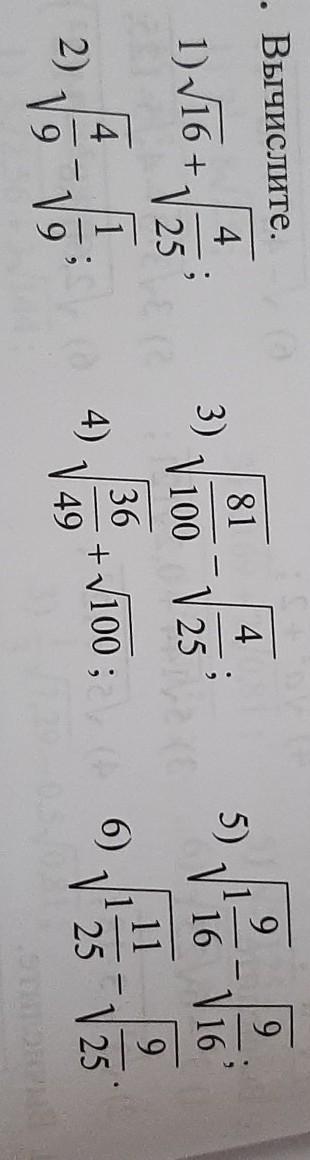 . Вычислите.
1) √16 + √(4/25);
2) √(4/9) − √(1/9);
3) √(81/100) − √(4/25);
4) √(36/49) + √100;
5) √(1 9/16) − √(9/16);
6) √(1 11/25) − √(9/25).